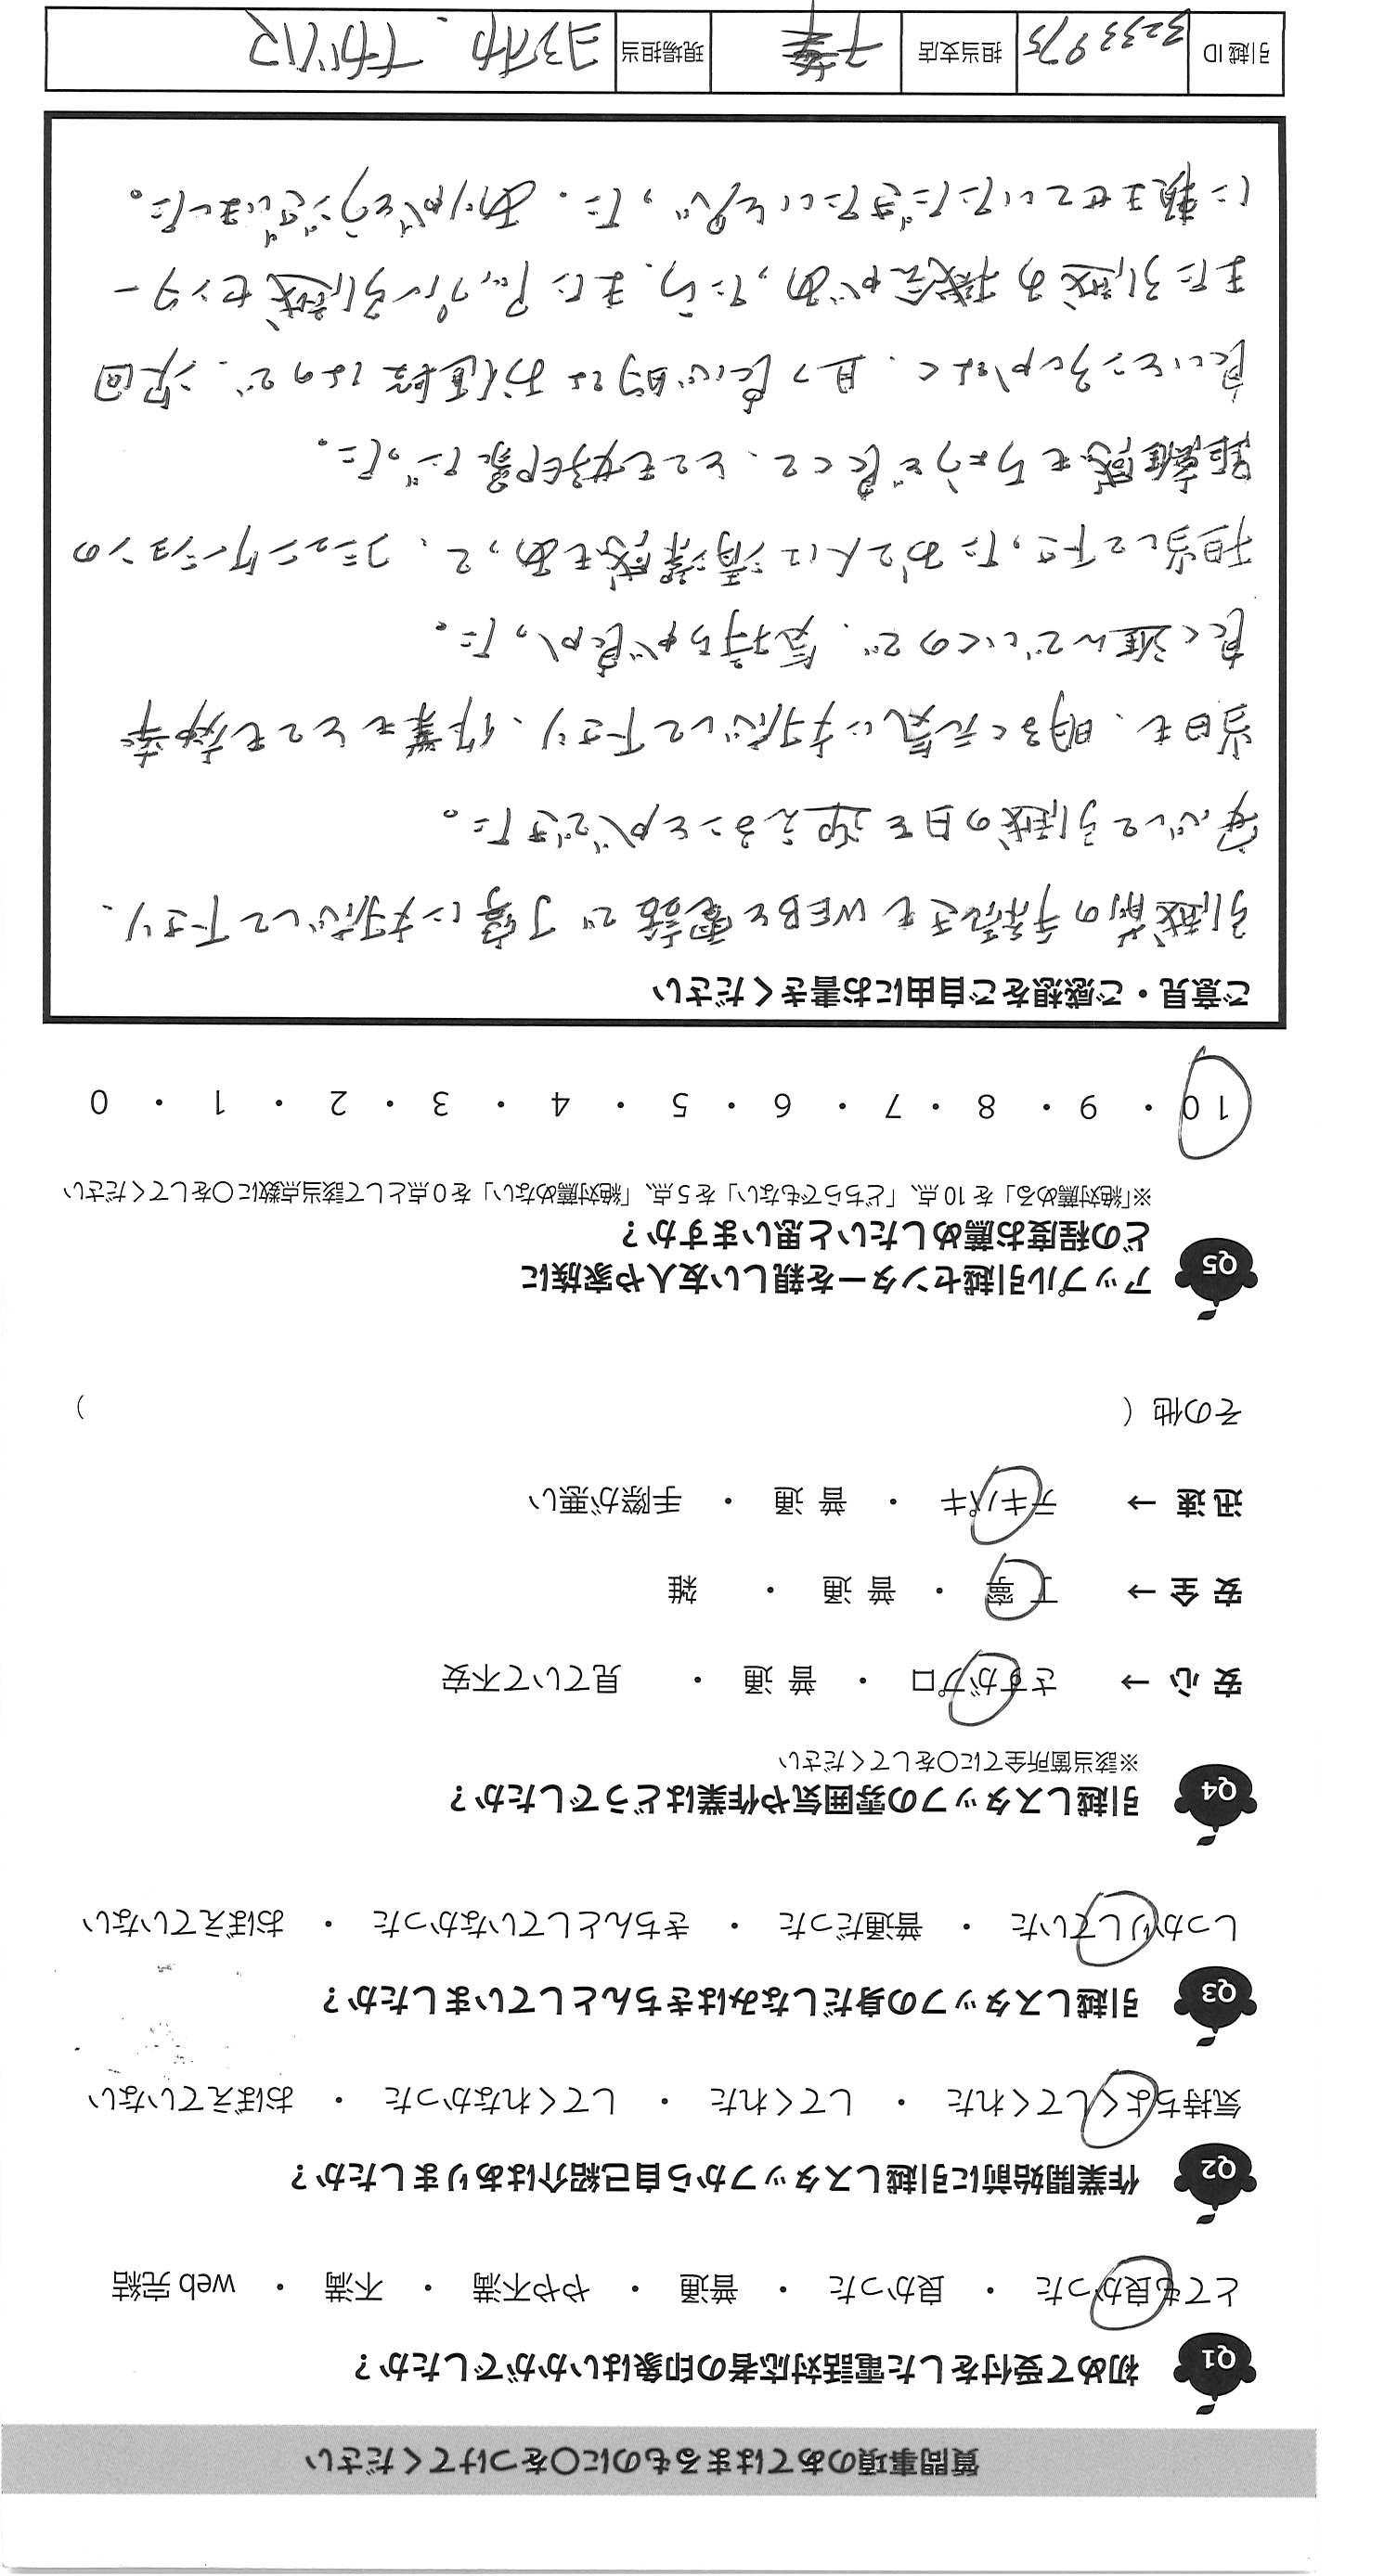 質問事項のあてはまるものに〇をつけてください
Q1 初めて受付をした電話対応者の印象はいかがでしたか？
とても良かった ・ 良かった ・ 普通 ・ やや不満 ・ 不満 ・ web 完結
Q2 作業開始前に引越しスタッフから自己紹介はありましたか？
気持ちよくしてくれた ・ してくれた ・ してくれなかった ・ おぼえていない
Q3 引越しスタッフの身だしなみはきちんとしていましたか？
しっかりしていた ・ 普通だった ・ きちんとしていなかった ・ おぼえていない
Q4 引越しスタッフの雰囲気や作業はどうでしたか？
※該当箇所全てに〇をしてください
安 心 → さすがプロ ・ 普 通 ・ 見ていて不安
安 全 → 丁 寧 ・ 普 通 ・ 雑
迅 速 → テキパキ ・ 普 通 ・ 手際が悪い
その他（ ）
Q5 アップル引越センターを親しい友人や家族に
どの程度お薦めしたいと思いますか？
※「絶対薦める」を 10 点、「どちらでもない」を 5 点、「絶対薦めない」を 0 点として該当点数に〇をしてください
10 ・ 9 ・ 8 ・ 7 ・ 6 ・ 5 ・ 4 ・ 3 ・ 2 ・ 1 ・ 0
ご意見・ご感想をご自由にお書きください
引越前の手続きもWEBと電話で丁寧に対応して下さり、
安心して引越の日を迎えることができた。
当日も、明るく元気に対応して下さり、作業もとても効率
良く進んでいくので、気持ちが良かった。
担当して下さったお2人は清潔感もあって、コミュニケーションの
距離感もちょうど良くて、とても好印象だった。
良いところしかなく、且つ良心的なお値段なので、次回
また引越の機会があったら、またアップル引越センター
に頼ませていただきたいと思った。ありがとうございました。
引越 ID 3233975 担当支店 千葉 現場担当 ヨコオ、